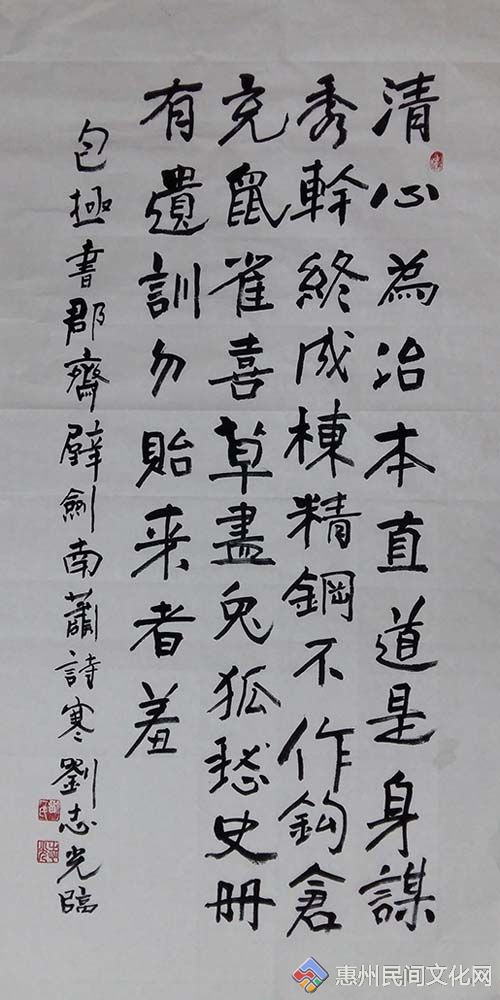 清心為治本直道是身謀
秀幹終成棟精鋼不作鈎倉
充鼠雀喜草盡兔狐愁史册
有遺訓勿貽来者羞
包極書郡齋壁劍南蕭詩寒劉志光臨
惠州民间文化网